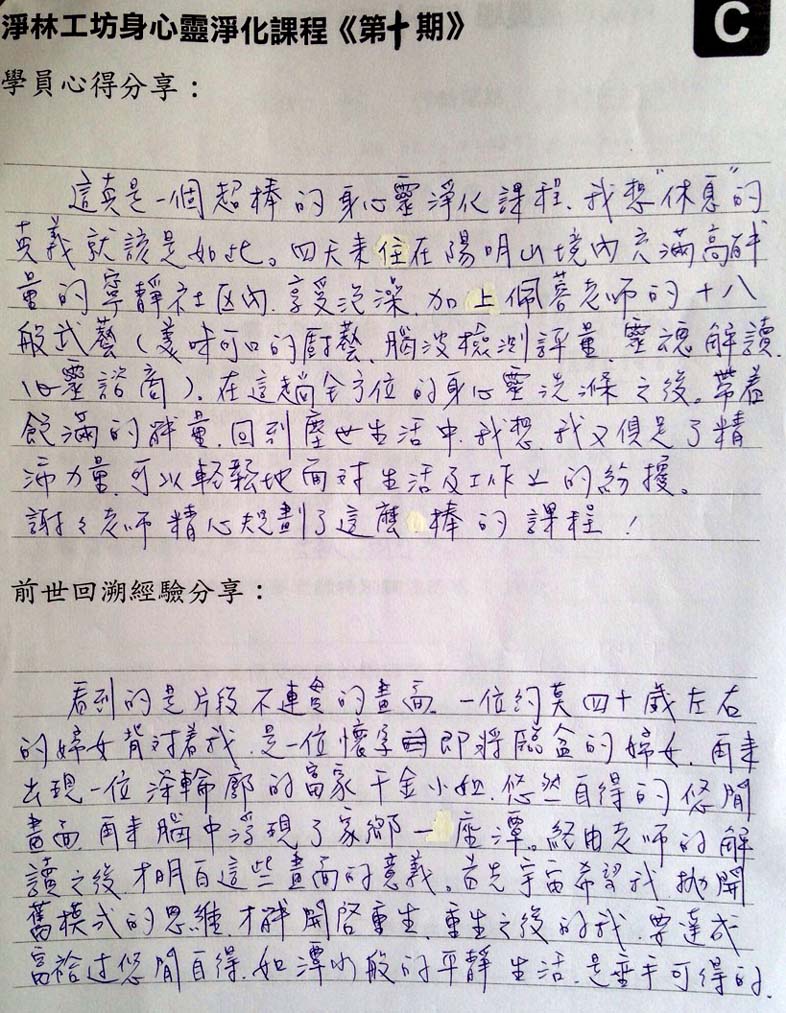 淨林工坊身心靈淨化課程《第十期》
C
學員心得分享：
這真是一個超棒的身心靈淨化課程.我想"休息"的
真義就該是如此。四天來住在陽明山境內充滿高能
量的寧靜社区內.享受泡澡.加上佩蓉老师的十八
般武藝(美味可口的廚藝.腦波檢測評量.靈魂解讀.
心靈諮商)。在這趟全方位的身心靈洗滌之後。帶着
飽滿的能量.回到塵世生活中.我想.我又俱足了精
沛力量.可以輕鬆地面对生活及工作上的紛擾。
謝々老师精心規劃了這麼棒的課程!
前世回溯經驗分享：
看到的是片段不連貫的畫面.一位約莫四十歲左右
的婦女背対着我.是一位懷孕即將臨盆的婦女.再來
出現一位深輪廓的富家千金小姐.悠然自得的悠閒
畫面.再來腦中浮現了家鄉一座潭。經由老师的解
讀之後.才明白這些畫面的意義。首先宇宙希望我.拋開
舊模式的思維.才能開啓重生.重生之後的我.要達成
富裕过悠閒自得.如潭水般的平靜生活.是垂手可得的.